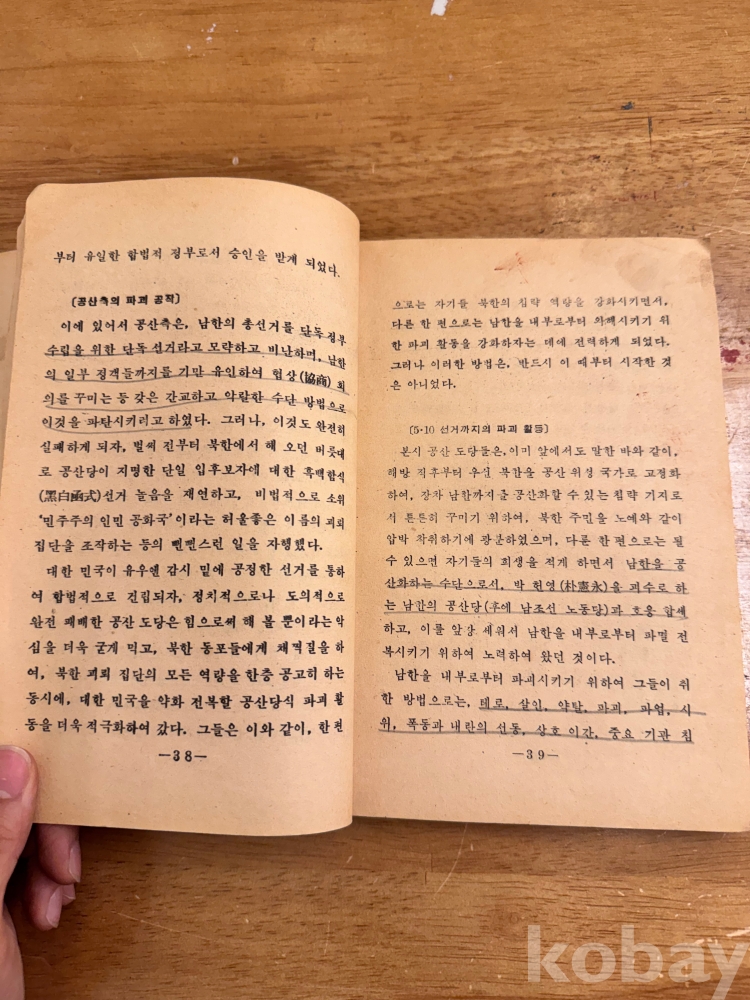 부터 유일한 합법적 정부로서 승인을 받게 되었다.
[공산측의 파괴 공작]
이에 있어서 공산측은, 남한의 총선거를 단독정부
수립을 위한 단독선거라고 모략하고 비난하며, 남한
의 일부 정객들까지를 기만 유인하여 협상(協商) 회
의를 꾸미는 등 갖은 간교하고 악랄한 수단 방법으로
이것을 파탄시키려고 하였다. 그러나, 이것도 완전히
실패하게 되자, 벌써 전부터 북한에서 해 오던 버릇대
로 공산당이 지명한 단일 입후보자에 대한 흑백함식
(黑白函式)선거 놀음을 재연하고, 비법적으로 소위
'민주주의 인민 공화국'이라는 허울좋은 이름의 괴뢰
집단을 조작하는 등의 뻔뻔스런 일을 자행했다.
대한 민국이 유우엔 감시 밑에 공정한 선거를 통하
여 합법적으로 건립되자, 정치적으로나 도의적으로
완전 패배한 공산 도당은 힘으로써 해 볼 뿐이라는 악
심을 더욱 굳게 먹고, 북한 동포들에게 채찍질을 하
여, 북한 괴뢰 집단의 모든 역량을 한층 공고히 하는
동시에, 대한 민국을 약화 전복할 공산당식 파괴 활
동을 더욱 적극화하여 갔다. 그들은 이와 같이, 한 편
—38—
으로는 자기들 북한의 침략 역량을 강화시키면서,
다른 한 편으로는 남한을 내부로부터 와해시키기 위
한 파괴 활동을 강화하자는 데에 전력하게 되었다.
그러나 이러한 방법은, 반드시 이 때부터 시작한 것
은 아니었다.
[5·10 선거까지의 파괴 활동]
본시 공산 도당들은, 이미 앞에서도 말한 바와 같이,
해방 직후부터 우선 북한을 공산 위성 국가로 고정화
하여, 장차 남한까지를 공산화할 수 있는 침략 기지로
서 튼튼히 꾸미기 위하여, 북한 주민을 노예와 같이
압박 착취하기에 광분하였으며, 다른 한 편으로는 될
수 있으면 자기들의 희생을 적게 하면서 남한을 공
산화하는 수단으로서, 박 헌영(朴憲永)을 괴수로 하
는 남한의 공산당(후에 남조선 노동당)과 호응 합세
하고, 이를 앞장 세워서 남한을 내부로부터 파멸 전
복시키기 위하여 노력하여 왔던 것이다.
남한을 내부로부터 파괴시키기 위하여 그들이 취
한 방법으로는, 테로, 살인, 약탈, 파괴, 파업, 시
위, 폭동과 내란의 선동, 상호 이간, 중요 기관 침
—39—
kobay